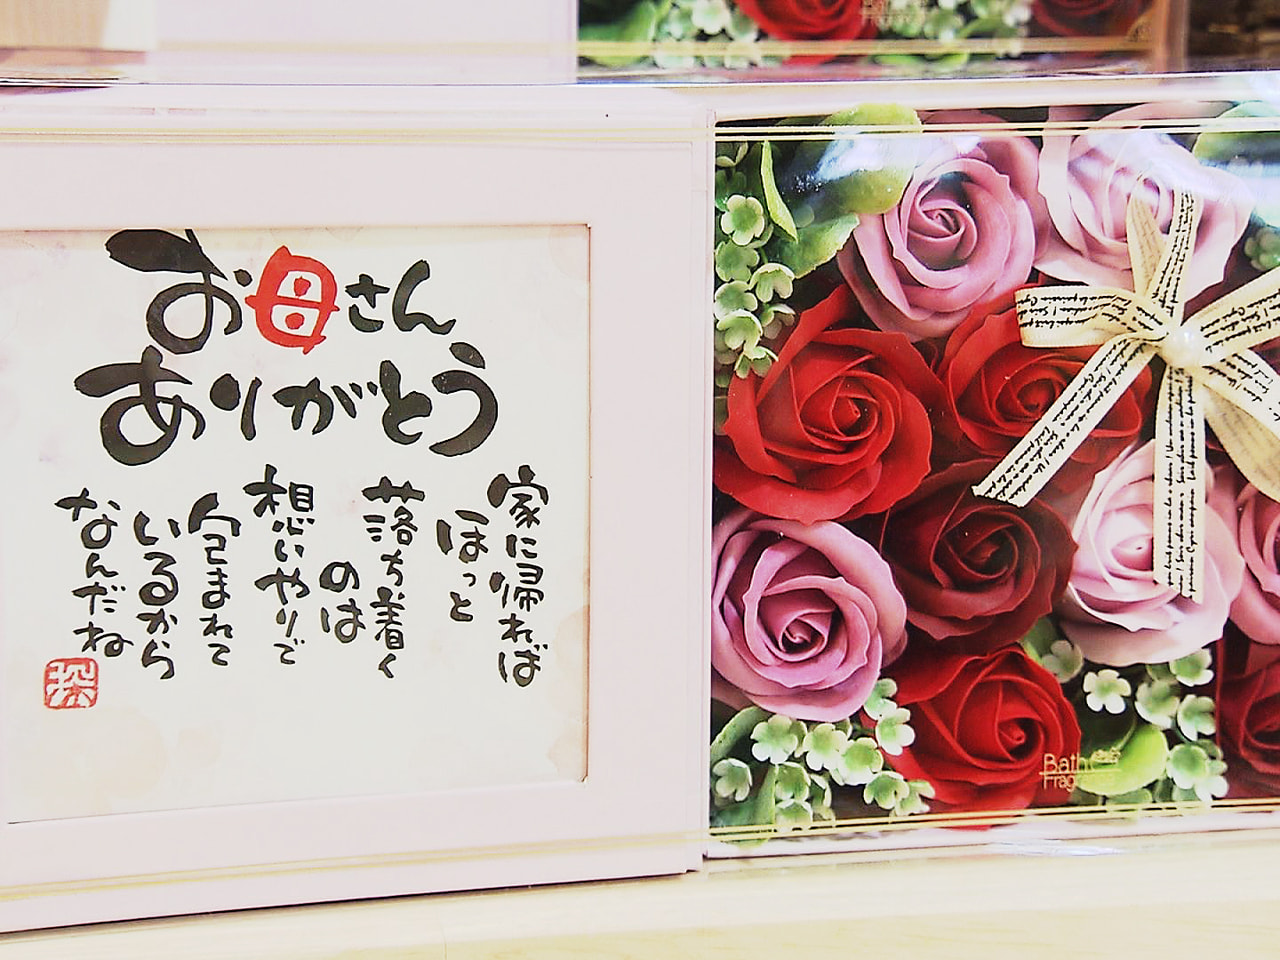 お母さん
ありがとう
家に帰れば
ほっと
落ち着く
のは
想いやりで
包まれて
いるから
なんだね
Bath